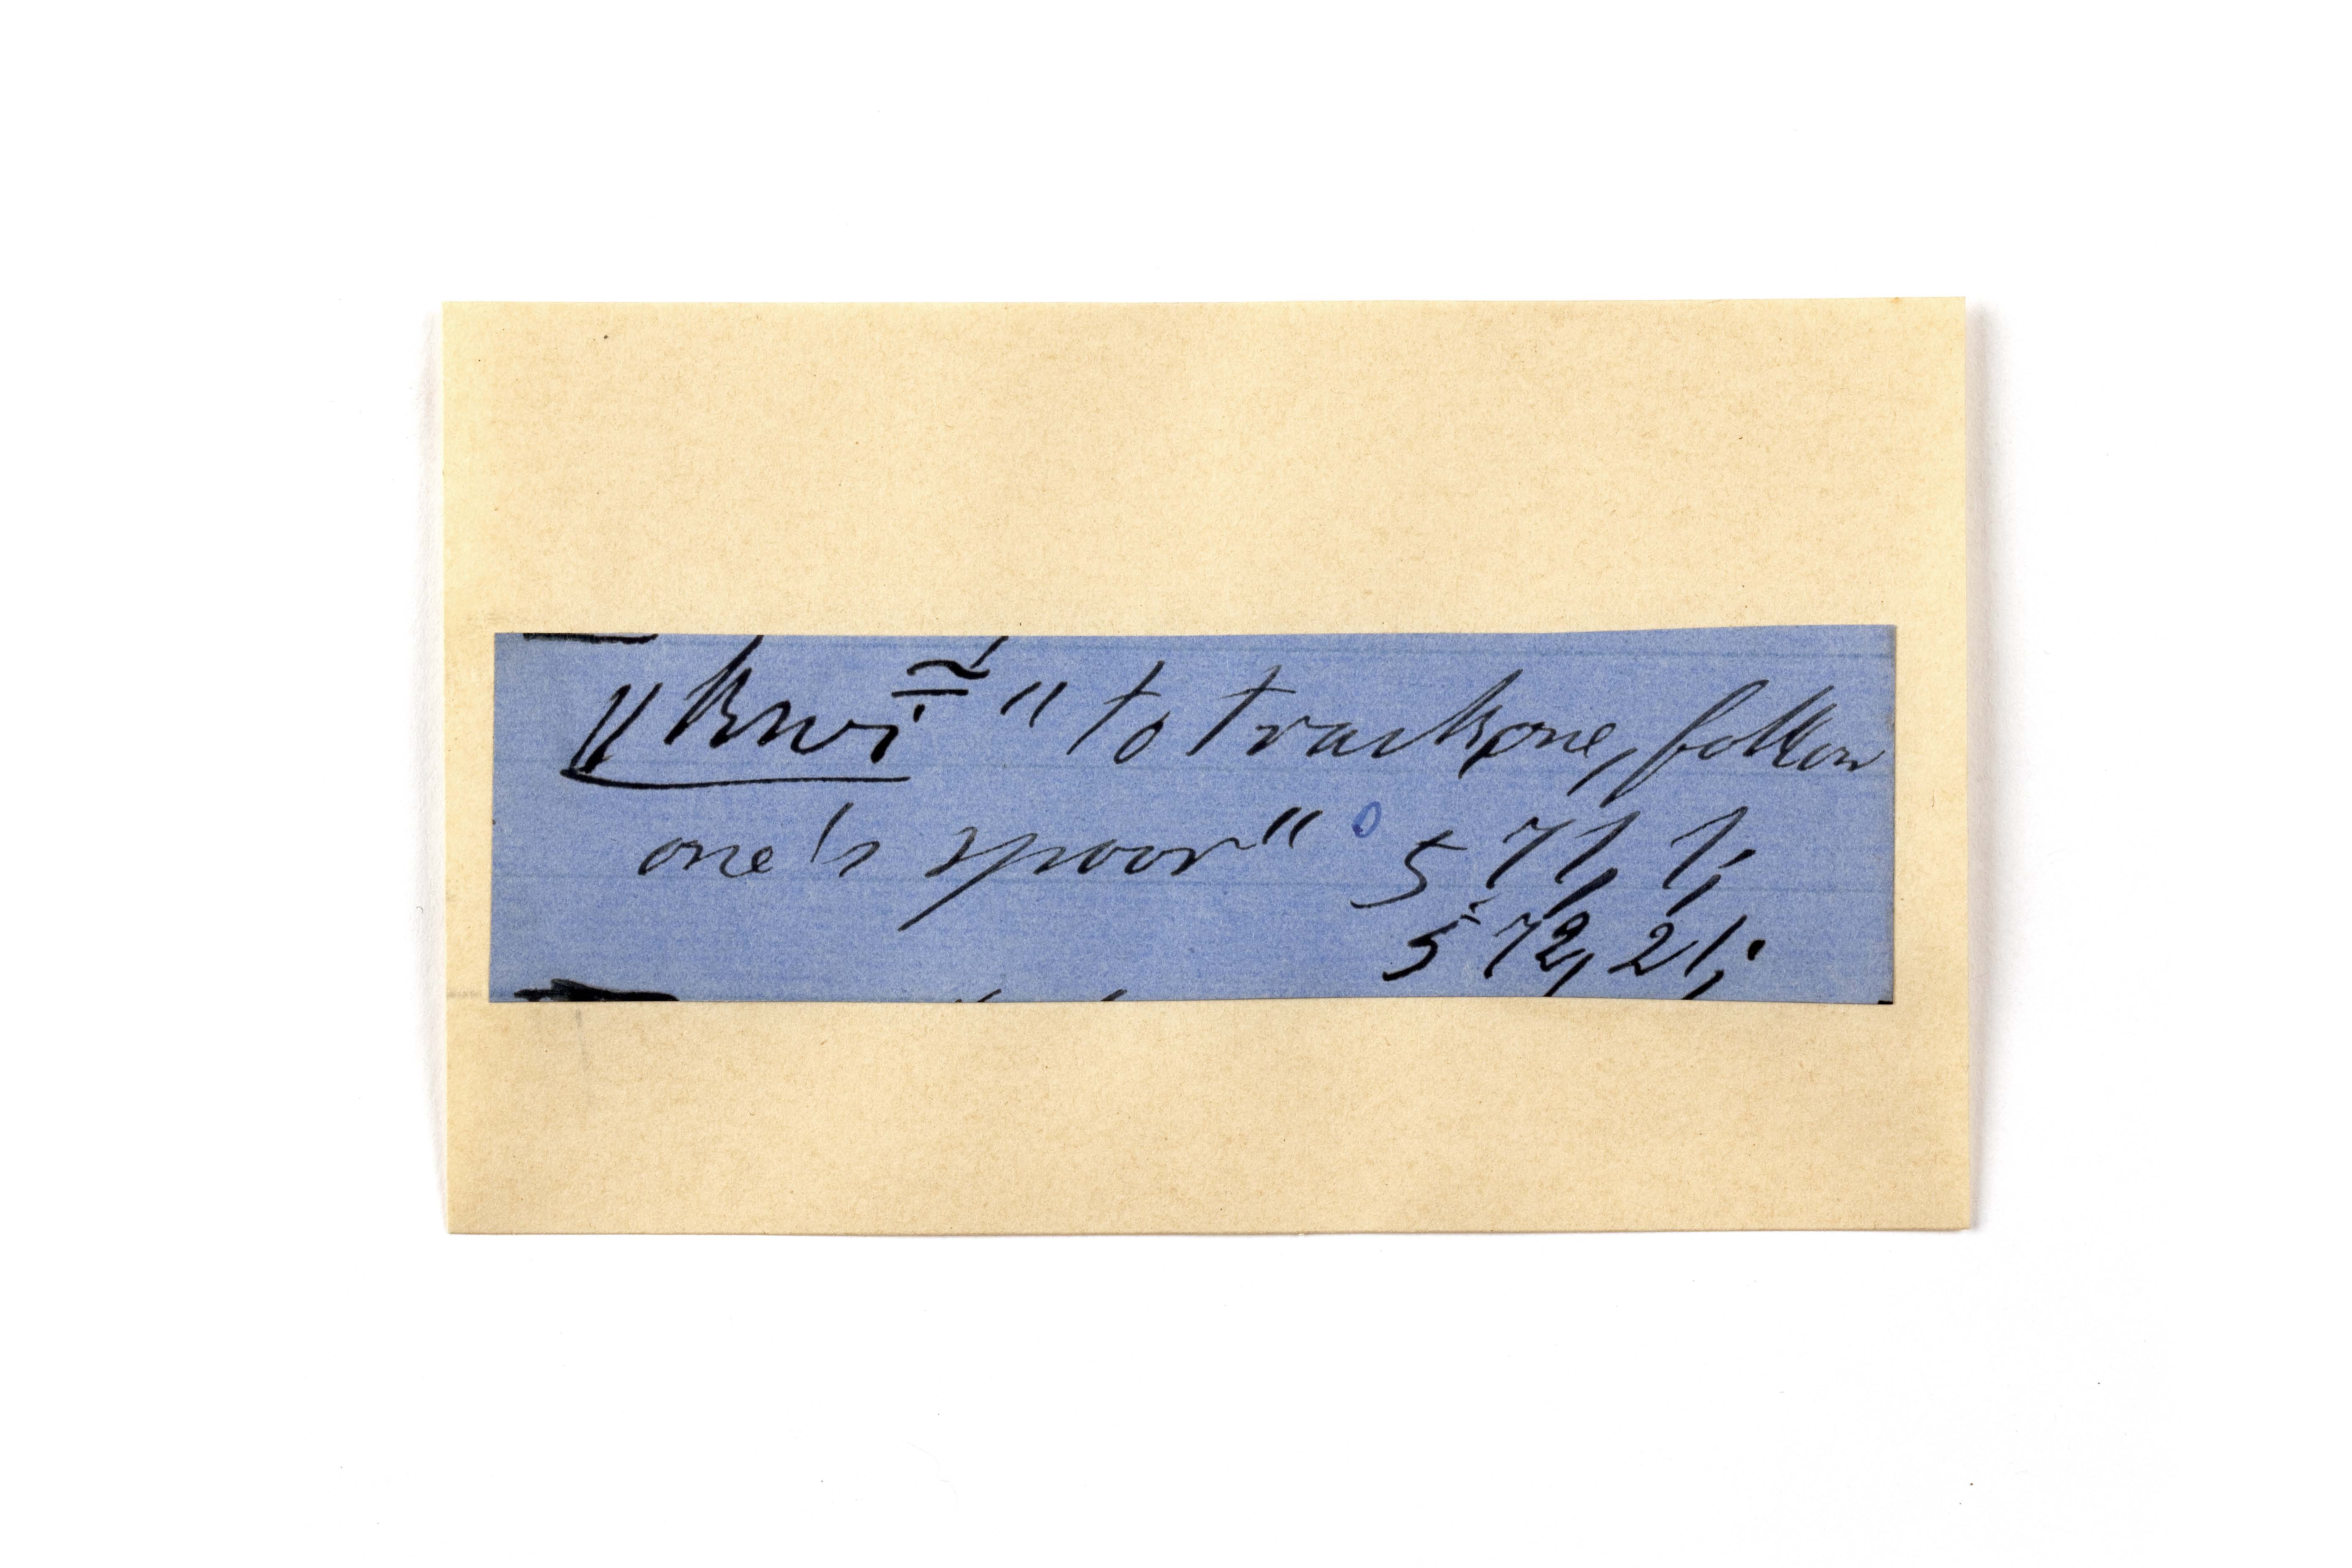 ǁkwi͌ " to track one, follow
one's spoor" 571, 1;
572, 21;